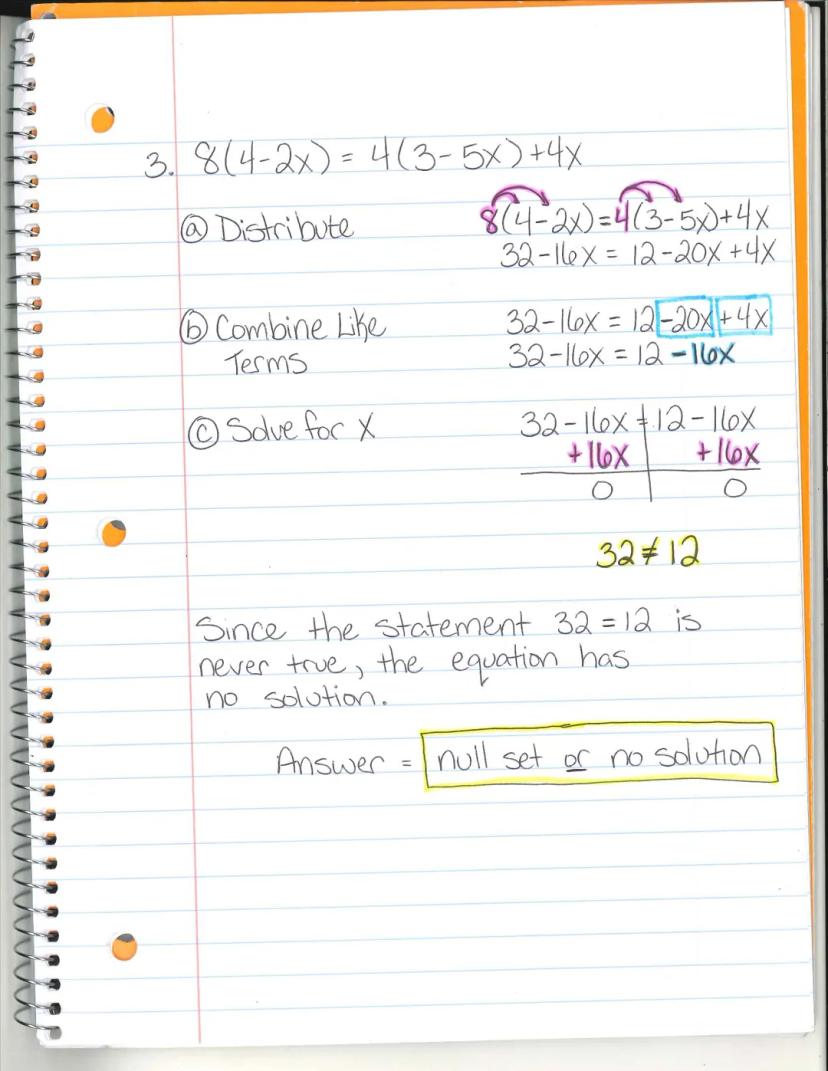 3. 8(4-2x) = 4(3-5x)+4x
ⓐ Distribute
8(4-2x)=4(3-5x)+4x
32-16x = 12-20x+4x
ⓑ Combine Like
Terms
32-16x = 12-20x+4x
32-16x = 12-16x
ⓒ Solve for X
32-16x = 12-16x
+16x +16x
0 0
32≠12
Since the statement 32=12 is
never true, the equation has
no solution.
Answer = null set or no solution